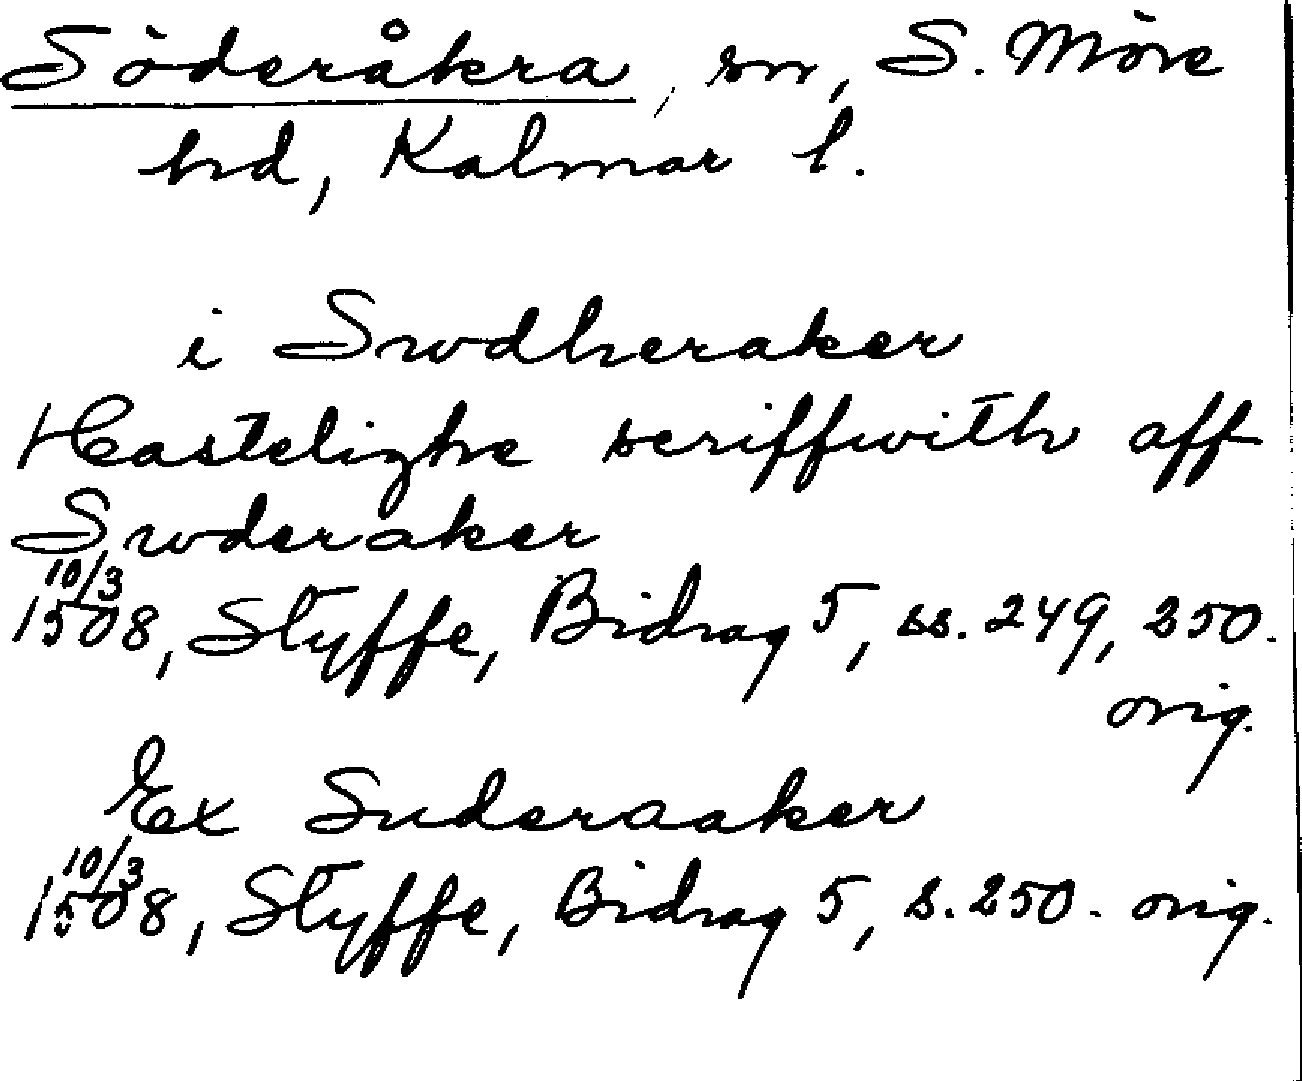 Söderåkra, sn, S. Möre
hd, Kalmar l.
i Swdheraker
Hastelighe scriffwith aff
Swderaker
10/3
1508, Styffe, Bidrag 5, ss. 249, 250.
orig.
Ex Suderaaker
10/3
1508, Styffe, Bidrag 5, s. 250. orig.